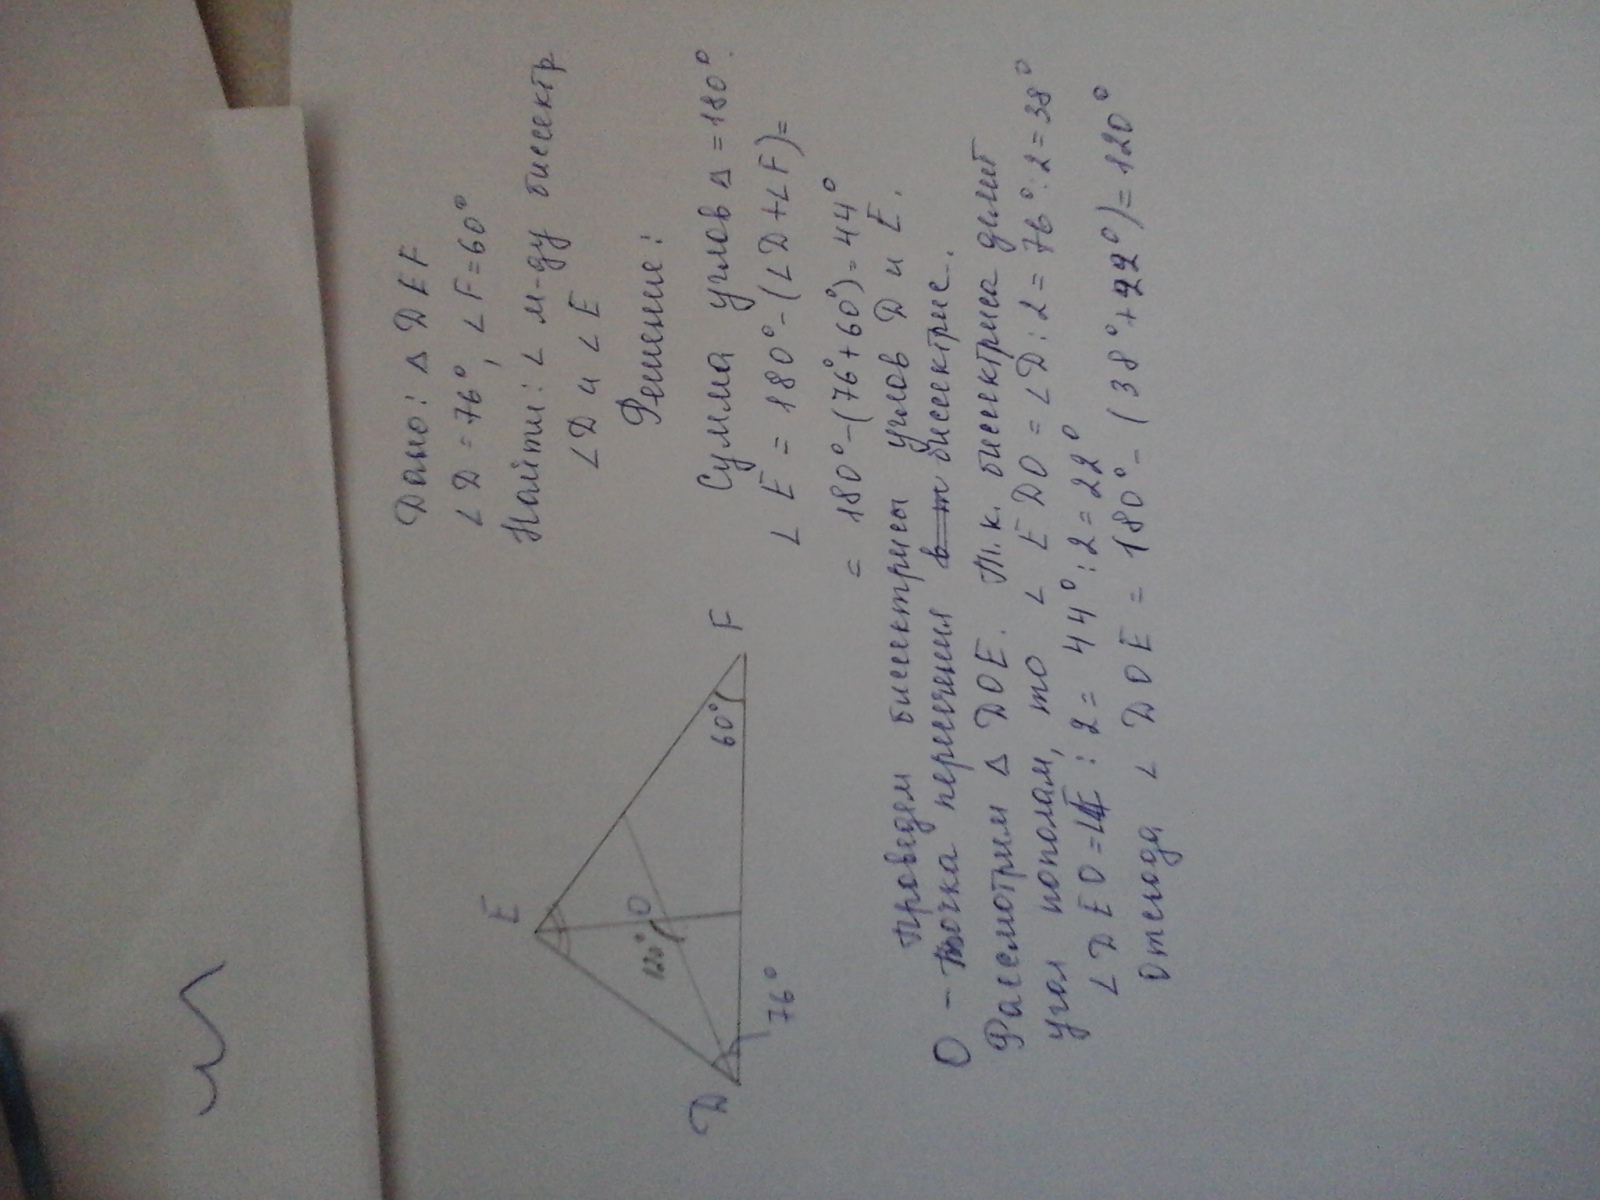 Дано: Δ DEF
∠D = 76°, ∠F = 60°
Найти: ∠ м-ду биссектр
∠D и ∠E
Решение:
E
O
120°
D
76°
60°
F
Сумма углов Δ = 180°.
∠E = 180° - (∠D + ∠F) =
= 180° - (76° + 60°) = 44°
Проведем биссектрисы углов D и E.
O - точка пересечения биссектрис.
Рассмотрим Δ DOE. Т.к. биссектриса делит
угол пополам, то ∠EDO = ∠D : 2 = 76° : 2 = 38°
∠DEO = ∠E : 2 = 44° : 2 = 22°
Отсюда ∠DOE = 180° - (38° + 22°) = 120°